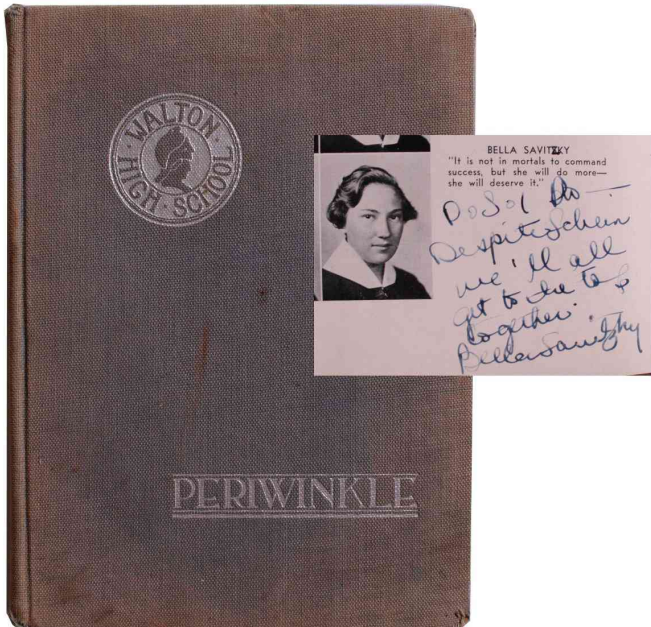 WALTON
HIGH SCHOOL
PERIWINKLE
BELLA SAVITZKY
"It is not in mortals to command
success, but she will do more—
she will deserve it."
Do I
Despite Schein
we'll all
get to the top
together.
Bella Savitzky